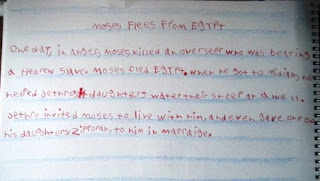 moses Flees From EgYPt
One daY, in anger, moses killed an overseer who was beating
a Hebrew slave. moses fled EgYPt. when he got to midian, he
helped Jethro daughters water their sheep at a well.
Jethro invited moses to live with him, and even gave one of
his daughters, zipporah, to him in marraige.